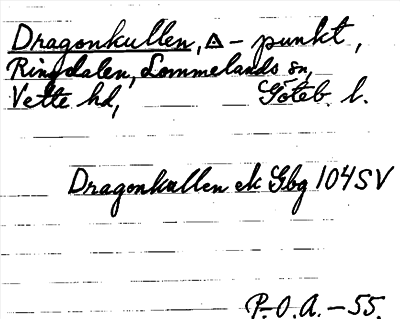 Dragonkullen, △ - punkt,
Ringdalen, Lommelands sn,
Vette hd, Göteb. l.
Dragonkullen ek Gbg 104SV
P.O.A. - 55.